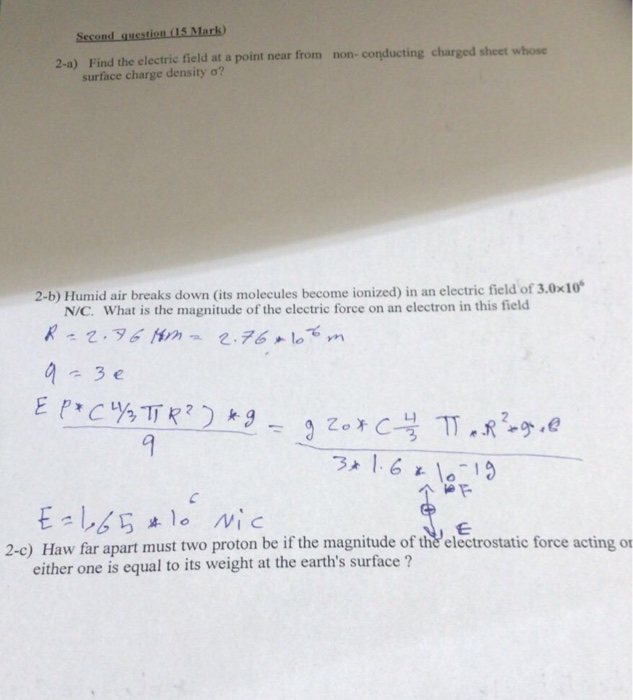 Second question (15 Mark)
2-a) Find the electric field at a point near from non-conducting charged sheet whose
surface charge density σ?
2-b) Humid air breaks down (its molecules become ionized) in an electric field of 3.0×10⁶
N/C. What is the magnitude of the electric force on an electron in this field
R = 2.76 Mm = 2.76 * 10⁻⁶ m
q = 3e
E P * (4/3 π R²) * g = 920 * (4/3 π . R² * g . e
q
3 * 1.6 * 10⁻¹⁹
F
E = 1.65 * 10⁶ N/C
E
2-c) Haw far apart must two proton be if the magnitude of the electrostatic force acting on
either one is equal to its weight at the earth's surface ?